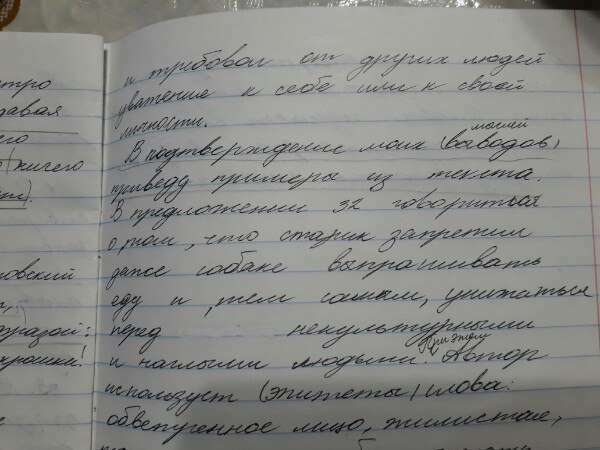 и требовал от других людей
уважение к себе или к своей
личности.
мыслей
В подтверждение моих (выводов)
приведу примеры из текста.
В предложении 32 говориться
о том, что старик запретил
даже собаке выпрашивать
еду и, тем самым, унижаться
перед некультурными
При этом
и наглыми людьми. Автор
использует (эпитеты) слова:
обветренное лицо, жилистая,
давая
его
ничего
овский
фразой:
крошки!